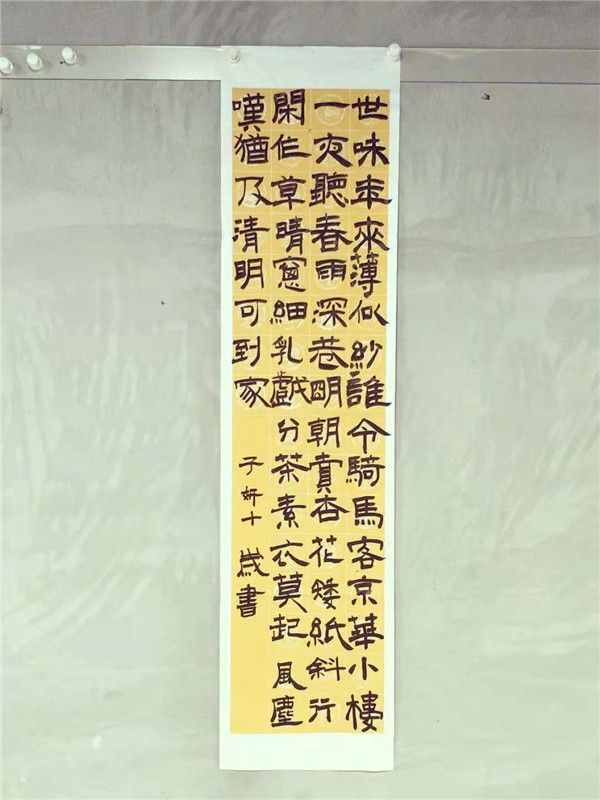 世味年來薄似紗誰令騎馬客京華小樓
一夜聽春雨深巷明朝賣杏花矮紙斜行
閑作草晴窗細乳戲分茶素衣莫起風塵
嘆猶及清明可到家
子妍十歲書